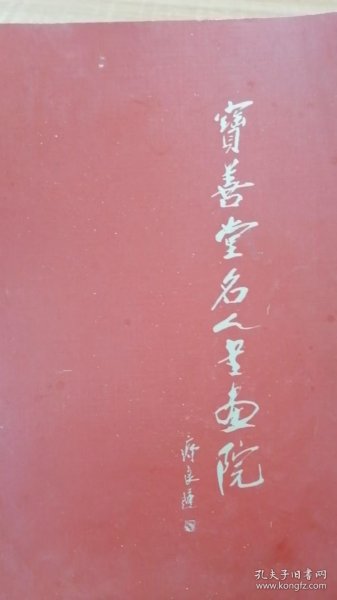 寶善堂名人書畫院
孔夫子旧书网
www.kongfz.com